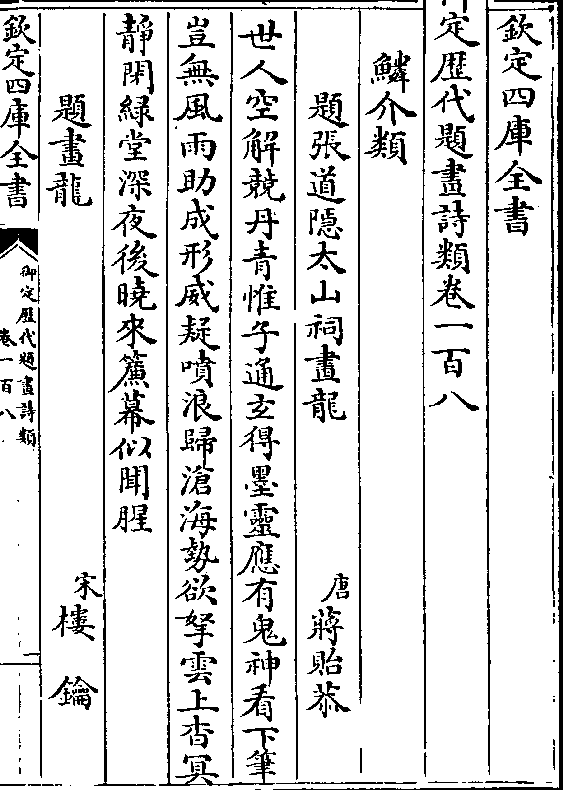 欽定四庫全書
御定歴代題畫詩類卷一百八
鱗介類
題張道隠太山祠畫龍　唐蔣貽恭
世人空解競丹青惟子通𤣥得墨靈應有鬼神看下筆
豈無風雨助成形威疑噴浪歸滄海勢欲拏雲上杳冥
静閉緑堂深夜後曉來簾幕似聞腥
題畫龍　宋樓鑰
欽定四庫全書
御定歴代題畫詩類
卷一百八
一